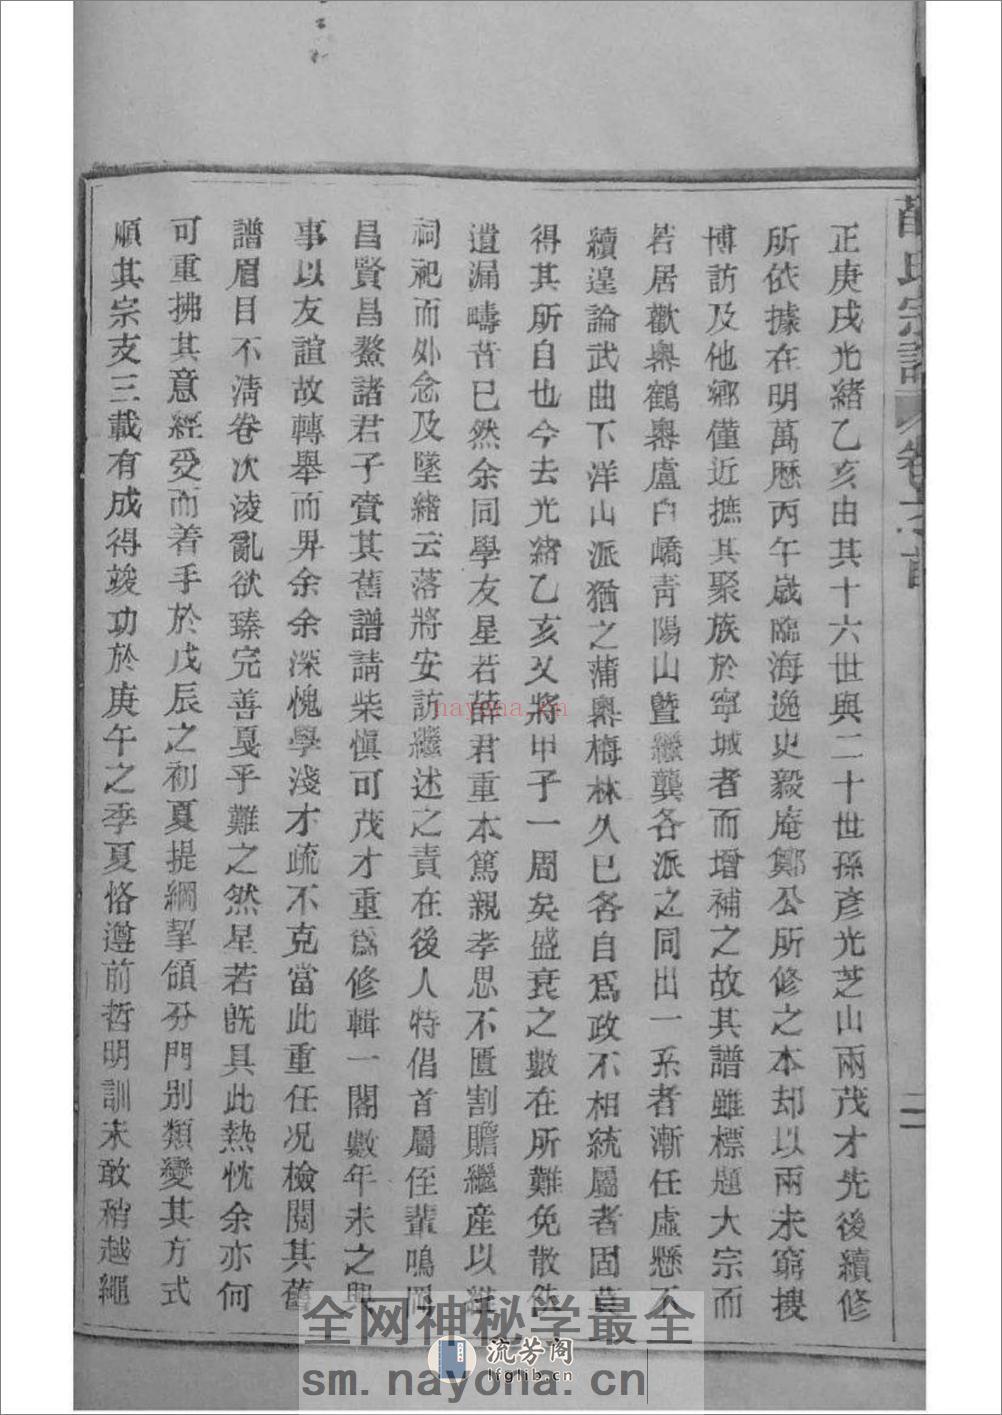 薛氏宗譜 卷六 首 二
正庚戌光緒乙亥由其十六世與二十世孫彥光芝山兩茂才先後續修
所依據在明萬歷丙午歲臨海逸史毅庵鄭公所修之本却以兩未窮搜
博訪及他鄉僅近摭其聚族於寧城者而增補之故其譜雖標題大宗而
若居歡奧鶴奧盧白嶠青陽山暨繼龔各派之同出一系者漸任虛懸不
續遑論武曲下洋山派猶之蒲奧梅林久已各自爲政不相統屬者固莫
得其所自也今去光緒乙亥又將甲子一周矣盛衰之數在所難免散佚
遺漏疇昔已然余同學友星若薛君重本篤親孝思不匱割贍繼產以維
祠祀而外念及墜緒云落將安訪繼述之責在後人特倡首屬侄輩鳴岡
昌賢昌鰲諸君子賫其舊譜請柴慎可茂才重爲修輯一閣數年未之興
事以友誼故轉舉而畀余余深愧學淺才疏不克當此重任况檢閱其舊
譜眉目不清卷次淩亂欲臻完善戛乎難之然星若旣具此熱忱余亦何
可重拂其意經受而着手於戊辰之初夏提綱挈領分門別類變其方式
順其宗支三載有成得竣功於庚午之季夏恪遵前哲明訓未敢稍越繩
nayona.cn
全网神秘学最全
流芳阁
lfglib.cn
sm.nayona.cn